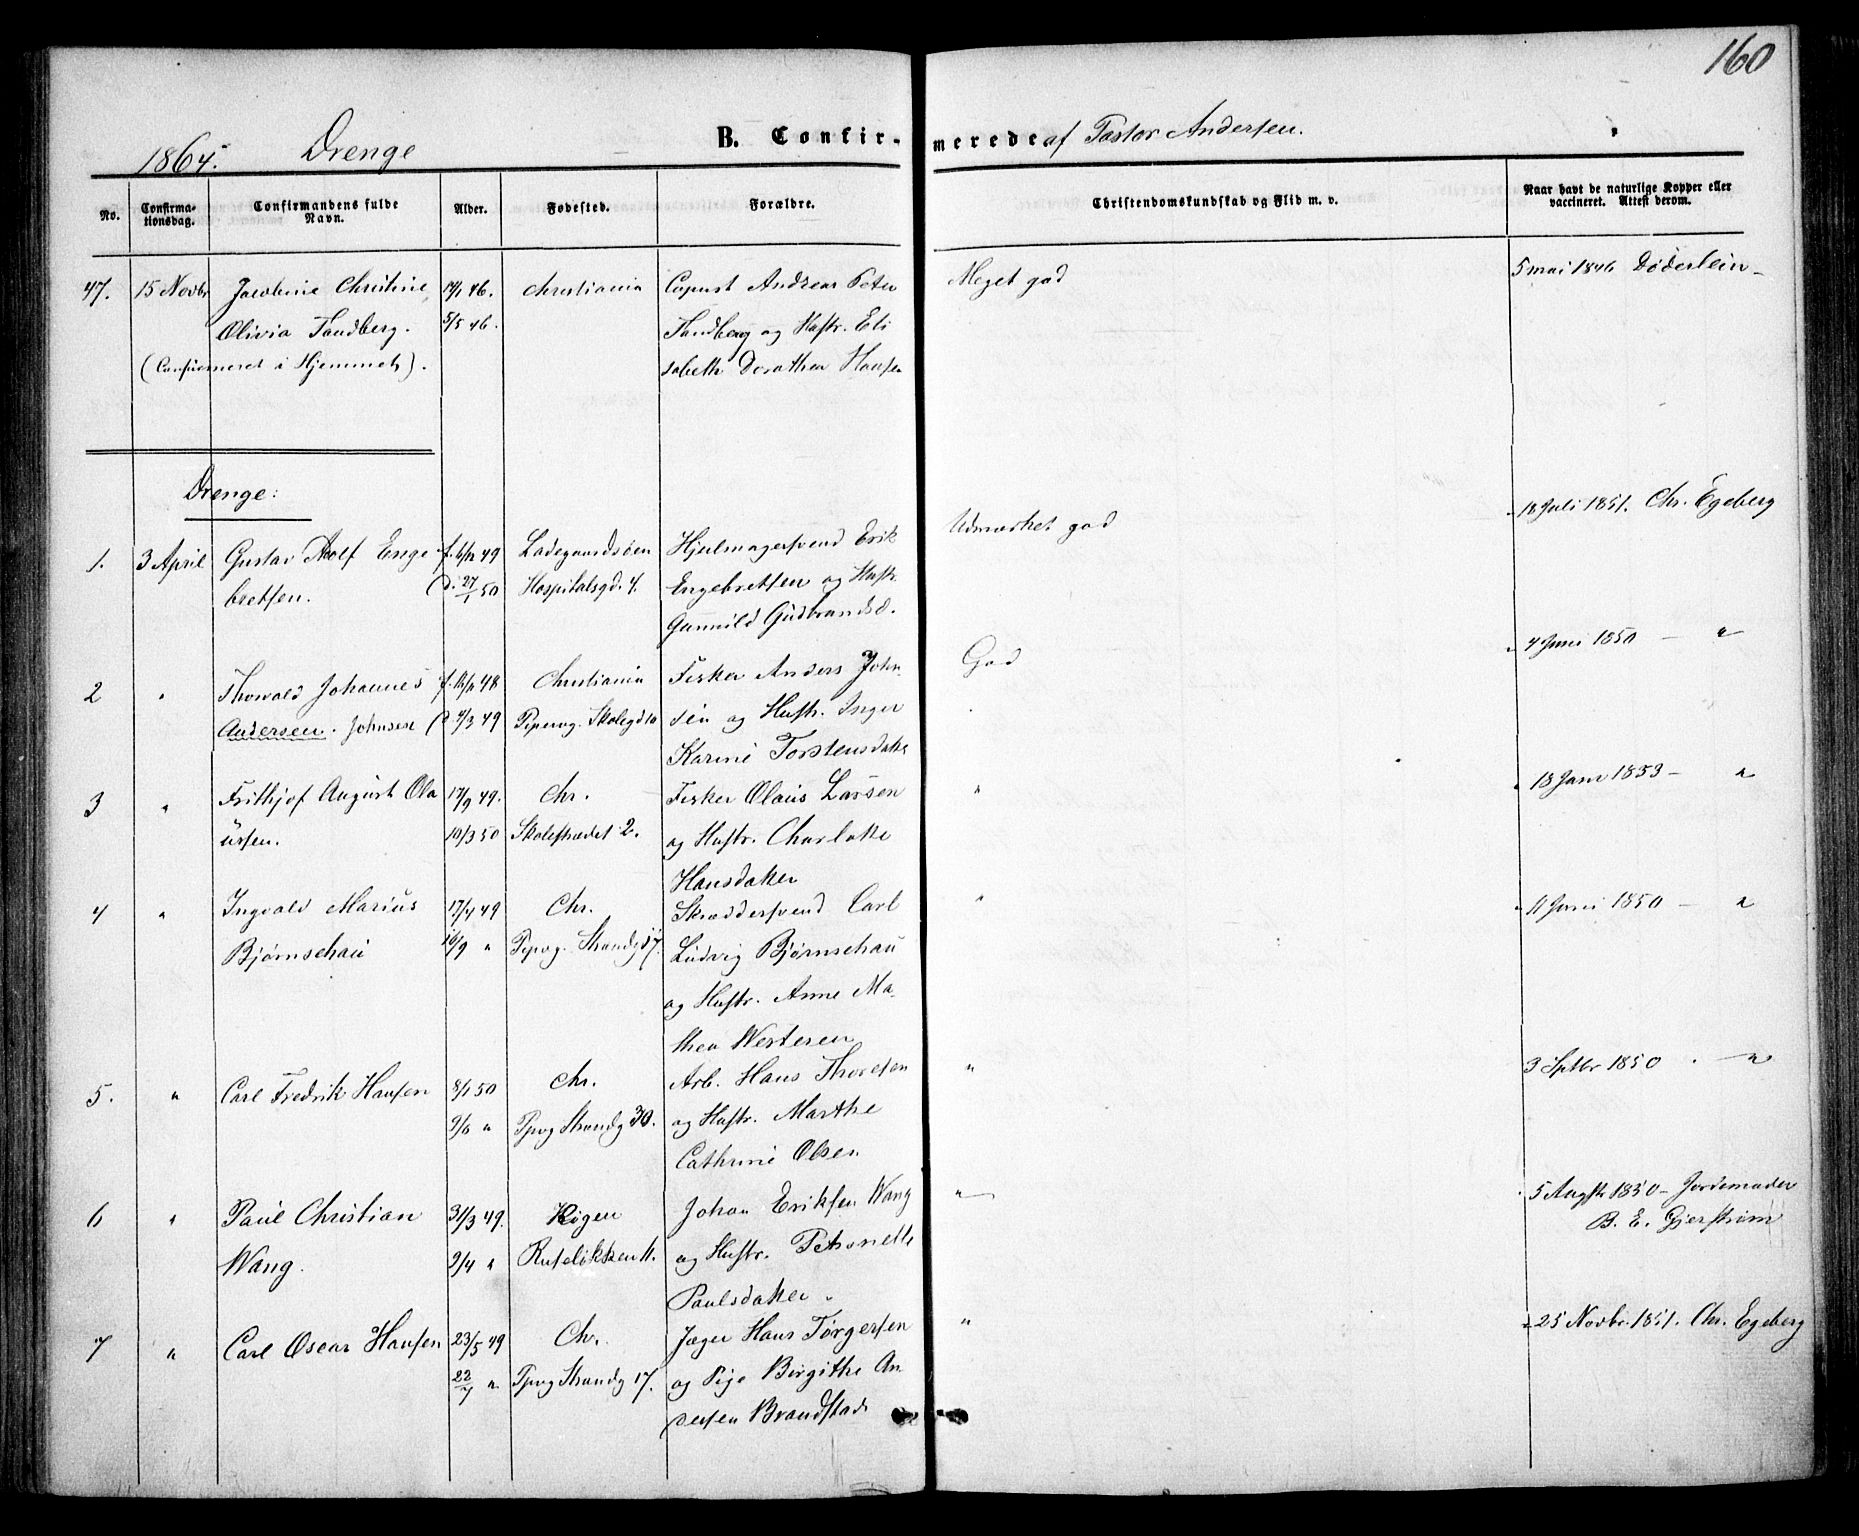 160
1864. Drenge B. Confirmerede af Pastor Andersen.
No. Confirmationsdag. Confirmandens fulde Navn. Alder. Fødested. Forældre. Christendomskundskab og Flid m. v. Naar havt de naturlige Kopper eller vaccineret. Attest derom.
47. 15 Novbr Jacobine Christine 46. Christiania August Andreas Peter Meget god 5 mai 1846 Døderlein
Olivia Sandberg. 5/5 46. Sandberg og Hustr. Eli
(Confirmeret i Hjemmet). sabeth Dorothea Hansen
Drenge:
1. 3 April Gustav Adolf Enge f. 6/12 49 Ladegaardsøen Hjulmagersvend Erik Udmærket god 18 Juli 1851. Chr. Egeberg
bretsen. d. 27/1 50 Hospitalsgd. 4. Engebretsen og Hustr.
Gunnild Gudbrandsd.
2 " Thorvald Johannes f. 48 Christiania Fisker Anders John- God 4 Juni 1850 — "
Andersen. Johnsen d. 4/3 49 Pipervig. Skolegd 10 sen og Hustr. Inger
Karine Torstensdatter
3 " Frithjof August Ola 17/9 49. Chr. Fisker Olaus Larsen " 18 Janr 1853 — "
ussen. 10/3 50 Skolestrædet 2. og Hustr. Charlotte
Hansdatter
4 " Ingvald Marius 17/4 49 Chr. Skræddersvend Carl " 11 Juni 1850 — "
Bjørnschau 16/9 " Pipvg. Strandgd 7. Ludvig Bjørnschau
og Hustr. Anne Ma-
thea Westeren
5. " Carl Fredrik Hansen 8/1 50 Chr. Arb. Hans Thoresen " 3 Septbr 1850 — "
9/6 " Ppvg Strandg 30. og Hustr. Marthe
Cathrine Olsen
6 " Paul Christian 31/3 49. Røgen Johan Eriksen Wang " 5 Augst 1850 — Jordemoder
Wang. 9/4 " Ruseløkken 11. og Hustr. Petronelle B. E. Gjerstrøm
Paulsdatter
7 " Carl Oscar Hansen 23/5 49 Chr. Jæger Hans Tørgersen " 25 Novbr. 1851. Chr. Egeberg
22/7 " Ppvg Strandg 17. og Pige Birgithe An
dersen Brandstad